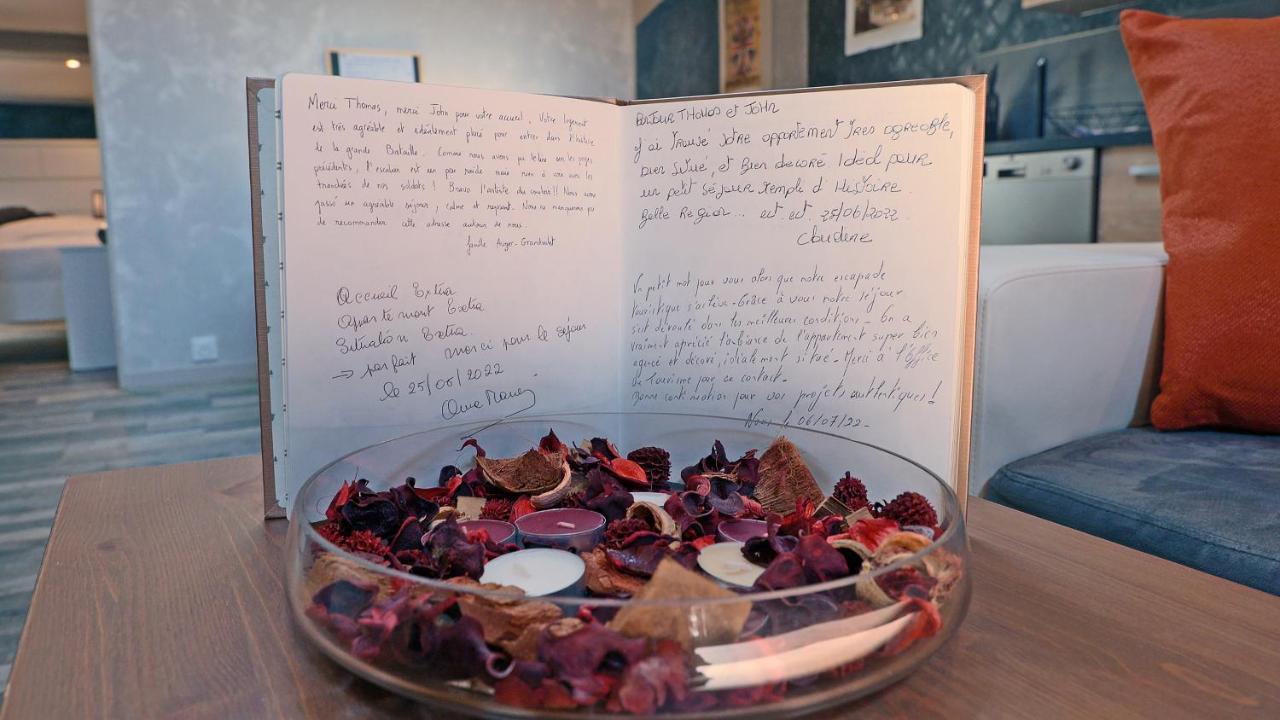 Merci Thomas, merci John pour votre accueil. Votre logement
est très agréable et idéalement placé pour entrer dans l'histoire
de la grande Bataille. Comme nous avons pu le lire sur les pages
précédentes, l'escalier est un peu raide mais rien à voir avec les
tranchées de nos soldats ! Bravo l'artiste du couloir!! Nous avons
passé un agréable séjour, calme et reposant. Nous ne manquerons pas
de recommander cette adresse autour de nous.
famille Auger-
Accueil Extra
Appartement Extra
Situation Extra.
→ parfait merci pour le séjour
le 25/06/2022
BONJOUR THOMAS et JOHN
J'ai trouvé votre appartement très agréable,
bien situé, et bien décoré. Idéal pour
un petit séjour rempli d'Histoire.
Belle Région... 25/06/2022.
Claudine
Un petit mot pour vous alors que notre escapade
touristique s'achève. Grâce à vous notre séjour
s'est déroulé dans les meilleures conditions. On a
vraiment apprécié l'ambiance de l'appartement super bien
agencé et décoré, idéalement situé. Merci à l'Office
de Tourisme pour ce contact.
Bonne continuation pour vos projets authentiques!
le 06/07/22.